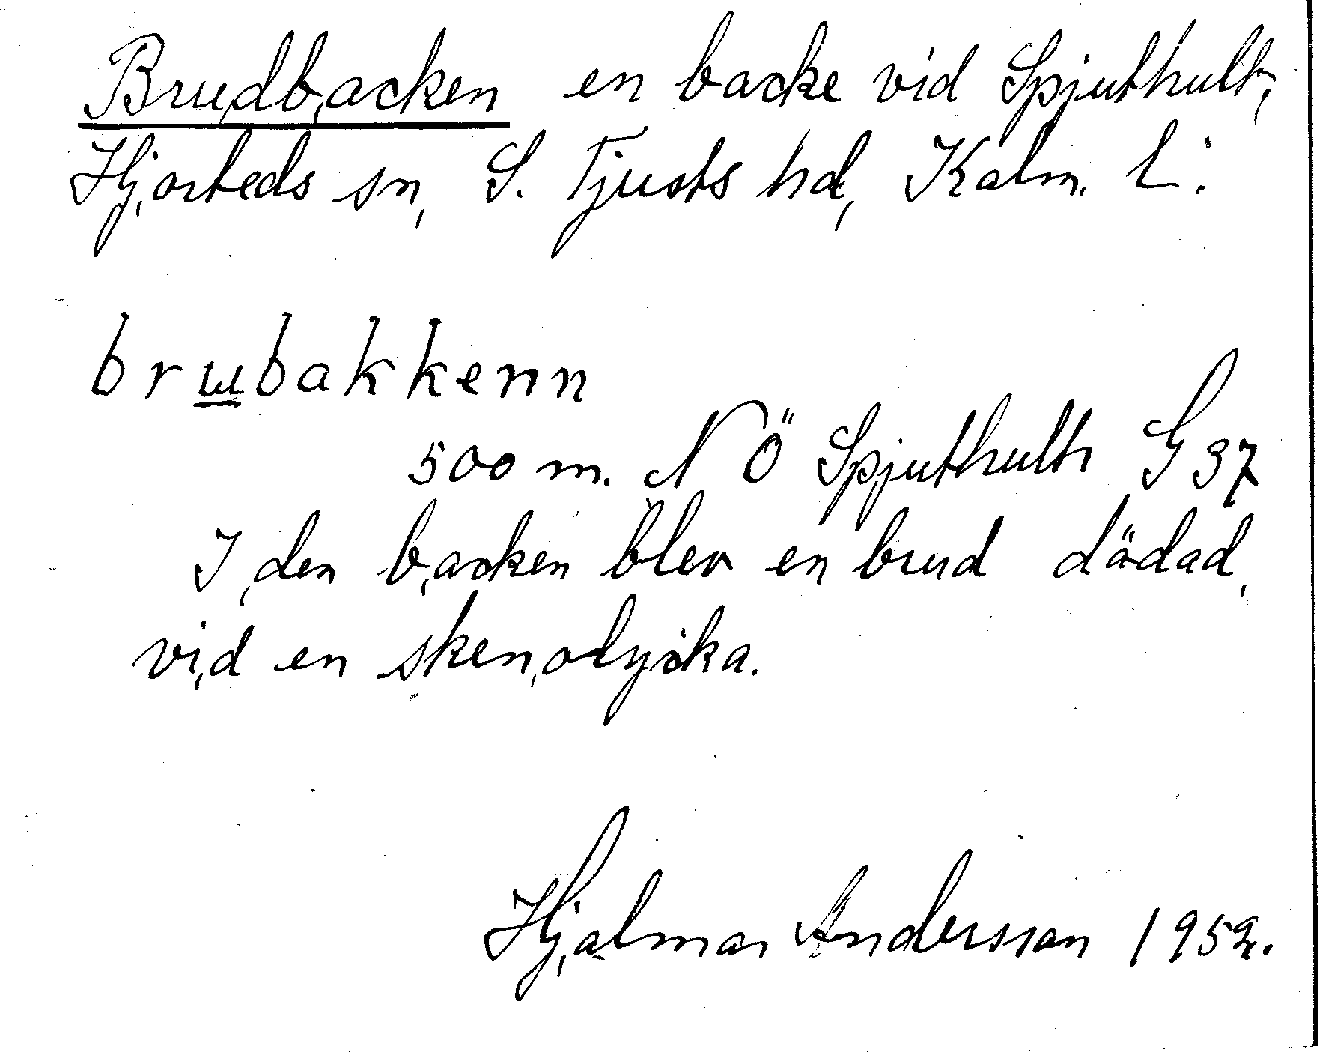 Brudbacken en backe vid Spjuthult,
Hjorteds sn, S. Tjusts hd, Kalm. L:
brɯbakkenn
500 m. NÖ Spjuthult G 37
I den backen blev en brud dödad,
vid en skenolycka.
Hjalmar Andersson 1952.